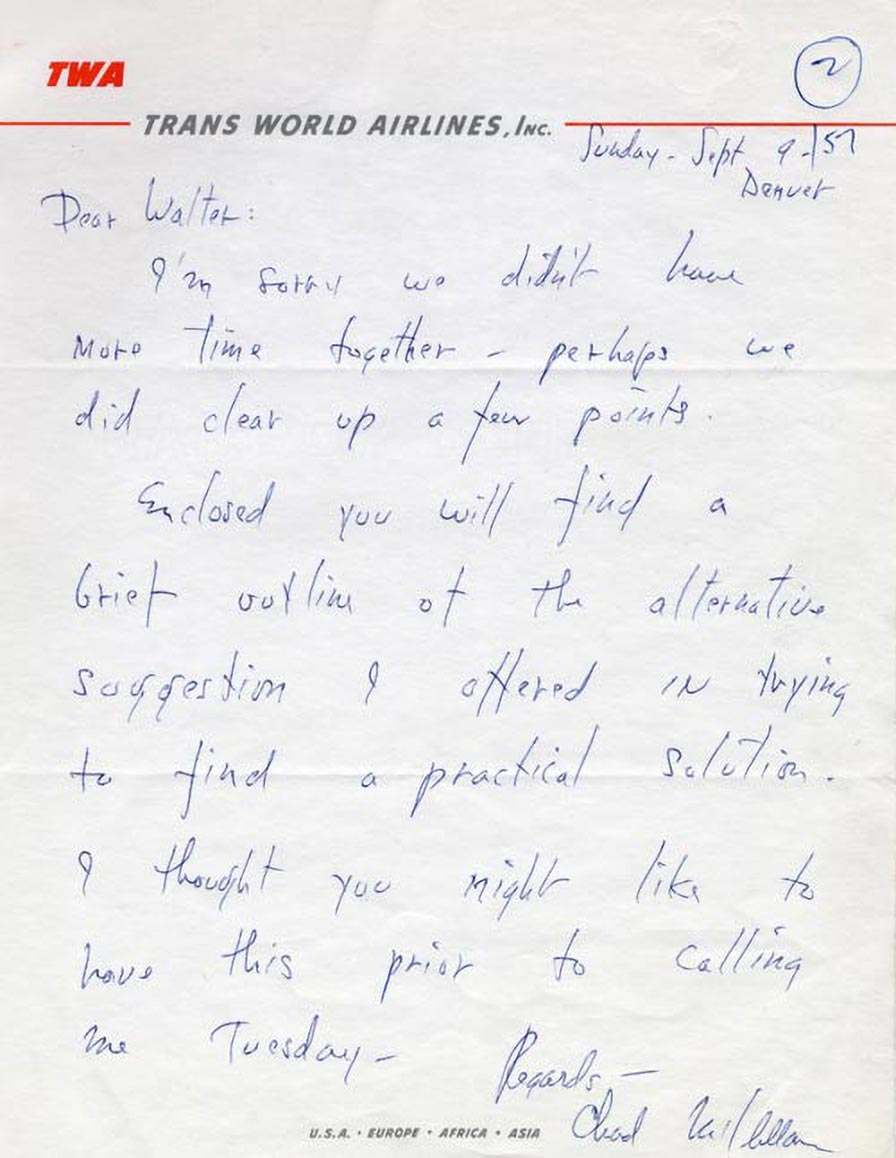 TWA
2
TRANS WORLD AIRLINES, INC.
Sunday - Sept 9 - 57
Denver
Dear Walter:
I'm sorry we didn't have
more time together - perhaps we
did clear up a few points.
Enclosed you will find a
brief outline of the alternative
suggestion I offered in trying
to find a practical solution.
I thought you might like to
have this prior to calling
me Tuesday -
Regards -
Chad
U.S.A. · EUROPE · AFRICA · ASIA